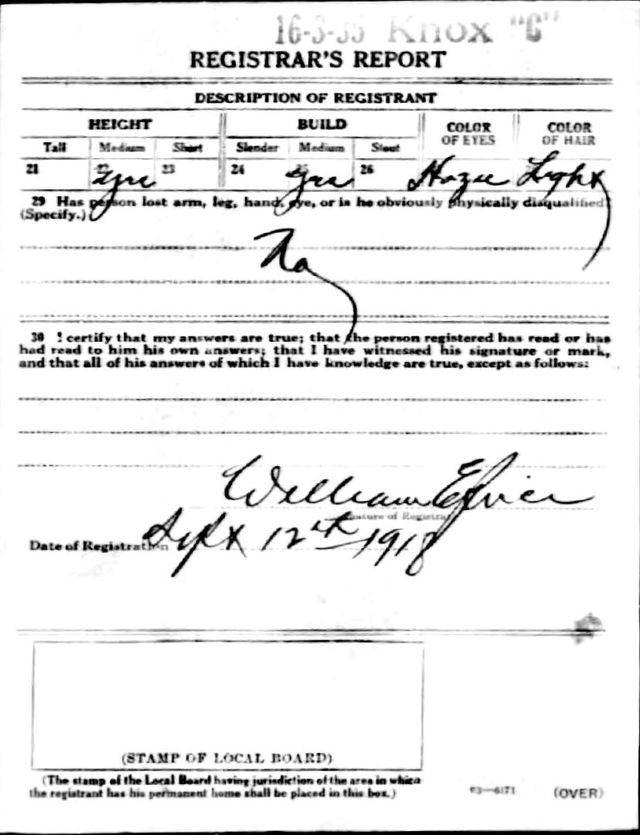 16-3-35 Knox "C"
REGISTRAR'S REPORT
DESCRIPTION OF REGISTRANT
HEIGHT BUILD COLOR OF EYES COLOR OF HAIR
Tall Medium Short Slender Medium Stout
21 22 yes 23 24 yes 26 Light
29 Has person lost arm, leg, hand, eye, or is he obviously physically disqualified?
(Specify.)
No
30 I certify that my answers are true; that the person registered has read or has
had read to him his own answers; that I have witnessed his signature or mark,
and that all of his answers of which I have knowledge are true, except as follows:
William
Signature of Registrar
Date of Registration Sept 12th 1918
(STAMP OF LOCAL BOARD)
(The stamp of the Local Board having jurisdiction of the area in which
the registrant has his permanent home shall be placed in this box.)
03—6171 (OVER)